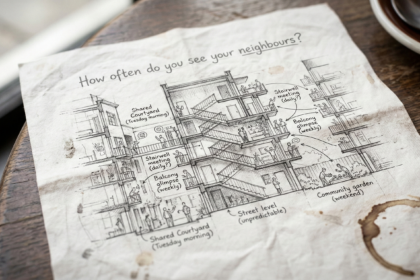 How often do you see your neighbours?
Shared
Courtyard
(Tuesday morning)
Stairwell
meeting
(daily?)
Balcony
glimpse
(weekly)
Shared Courtyard
(Tuesday morning)
Street level
(unpredictable)
Stairwell
meeting
(daily)
Balcony
glimpse
(weekly)
Community garden
(weekend)